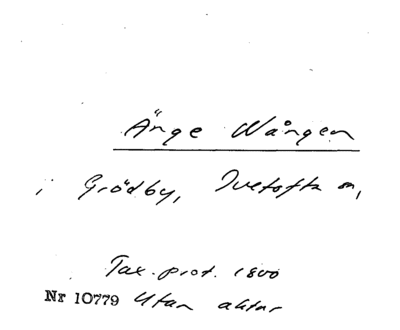 Änge Wången
i Grödby, Ivetofta sn,
Tax. prot. 1800
Nr 10779 Utan aktnr